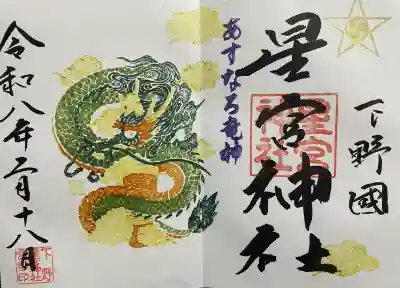 下野國
星宮神社
星宮
神社
あすなろ竜神
令和八年二月十八日